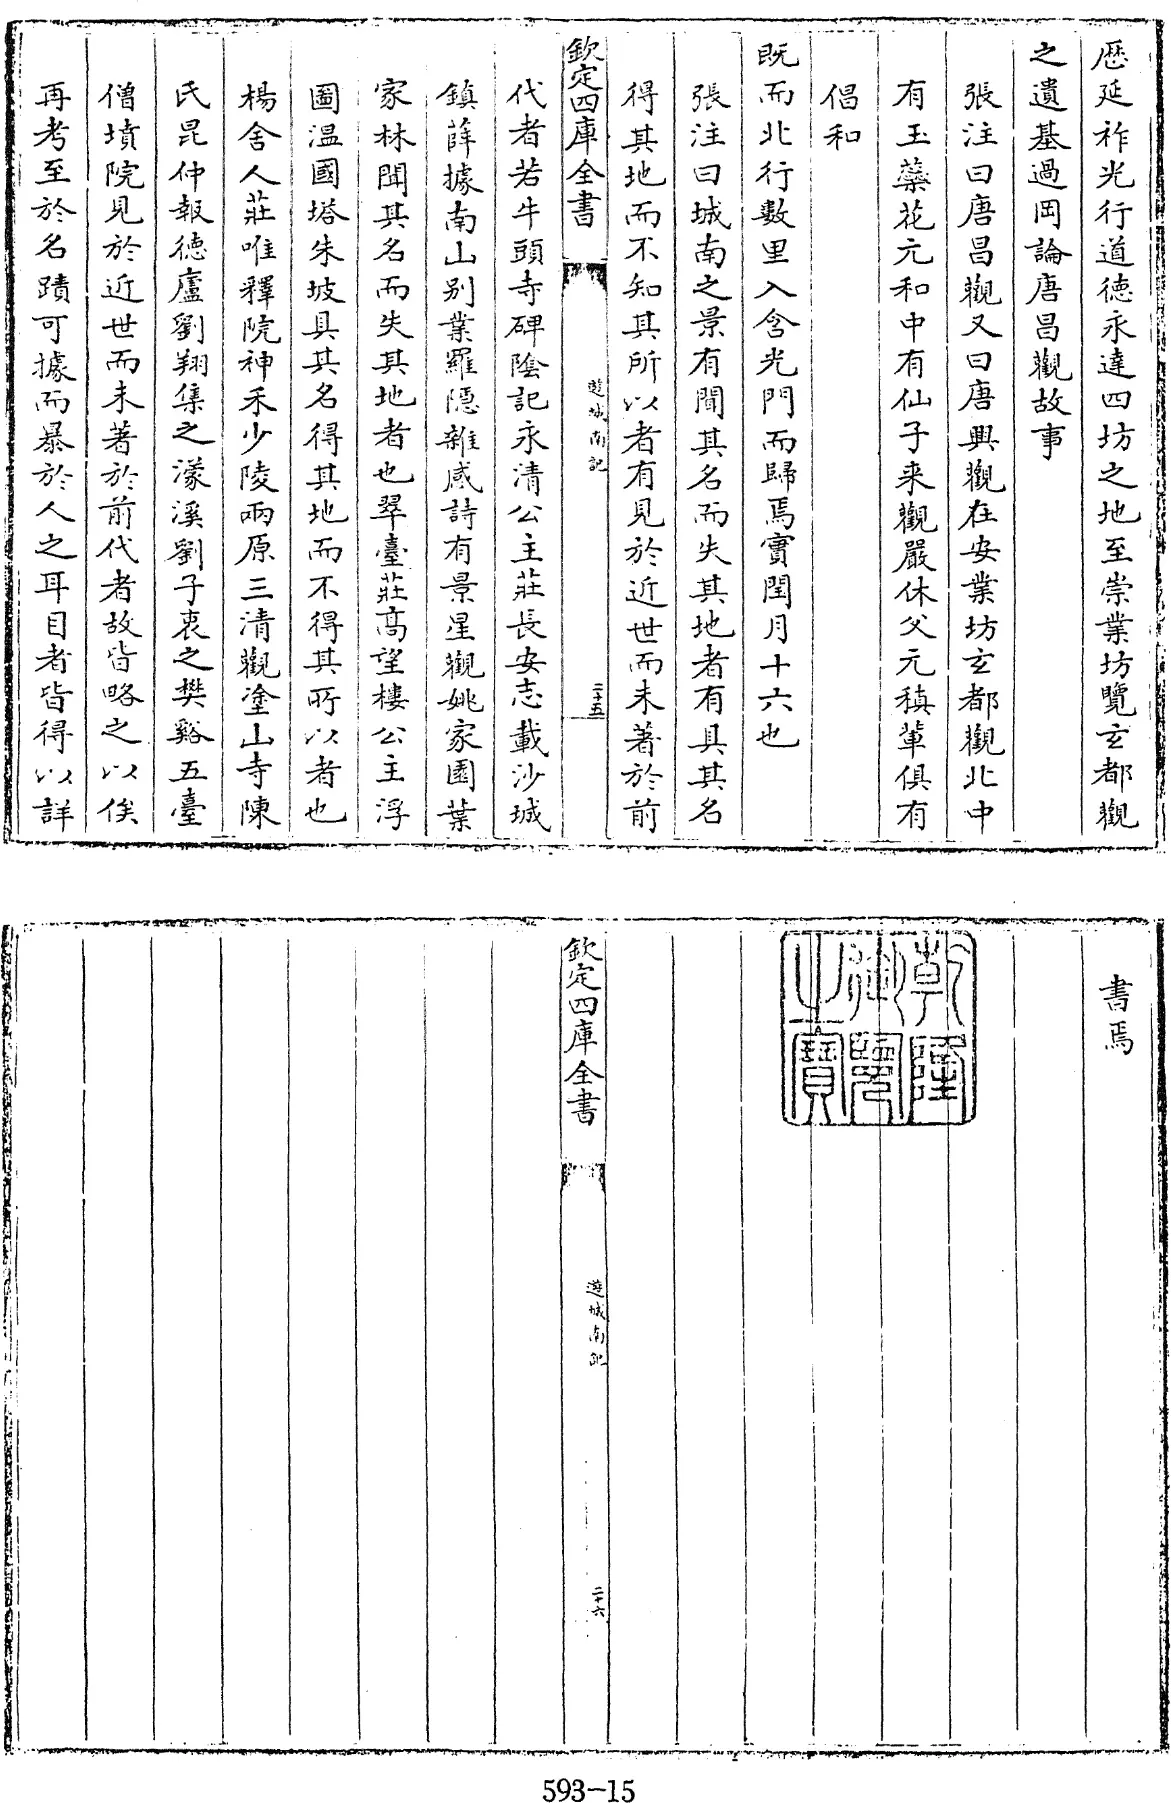 歴延祚光行道德永達四坊之地至崇業坊覽玄都觀
之遺基過岡論唐昌觀故事
張注曰唐昌觀又曰唐興觀在安業坊玄都觀北中
有玉蘂花元和中有仙子来觀嚴休父元稹軰俱有
倡和
既而北行數里入含光門而歸焉實閏月十六也
張注曰城南之景有聞其名而失其地者有具其名
得其地而不知其所以者有見於近世而未著於前
欽定四庫全書
遊城南記
二十五
代者若牛頭寺碑隂記永清公主莊長安志載沙城
鎮薛據南山别業羅隱雜感詩有景星觀姚家園葉
家林聞其名而失其地者也翠臺莊髙望樓公主浮
圖温國塔朱坡具其名得其地而不得其所以者也
楊舍人莊唯釋院神禾少陵兩原三清觀塗山寺陳
氏昆仲報德廬劉翔集之濛溪劉子衷之樊谿五臺
僧墳院見於近世而未著於前代者故皆略之以俟
再考至於名蹟可據而暴於人之耳目者皆得以詳
書焉
乾隆御覽之寶
欽定四庫全書
遊城南記
二十六
593-15